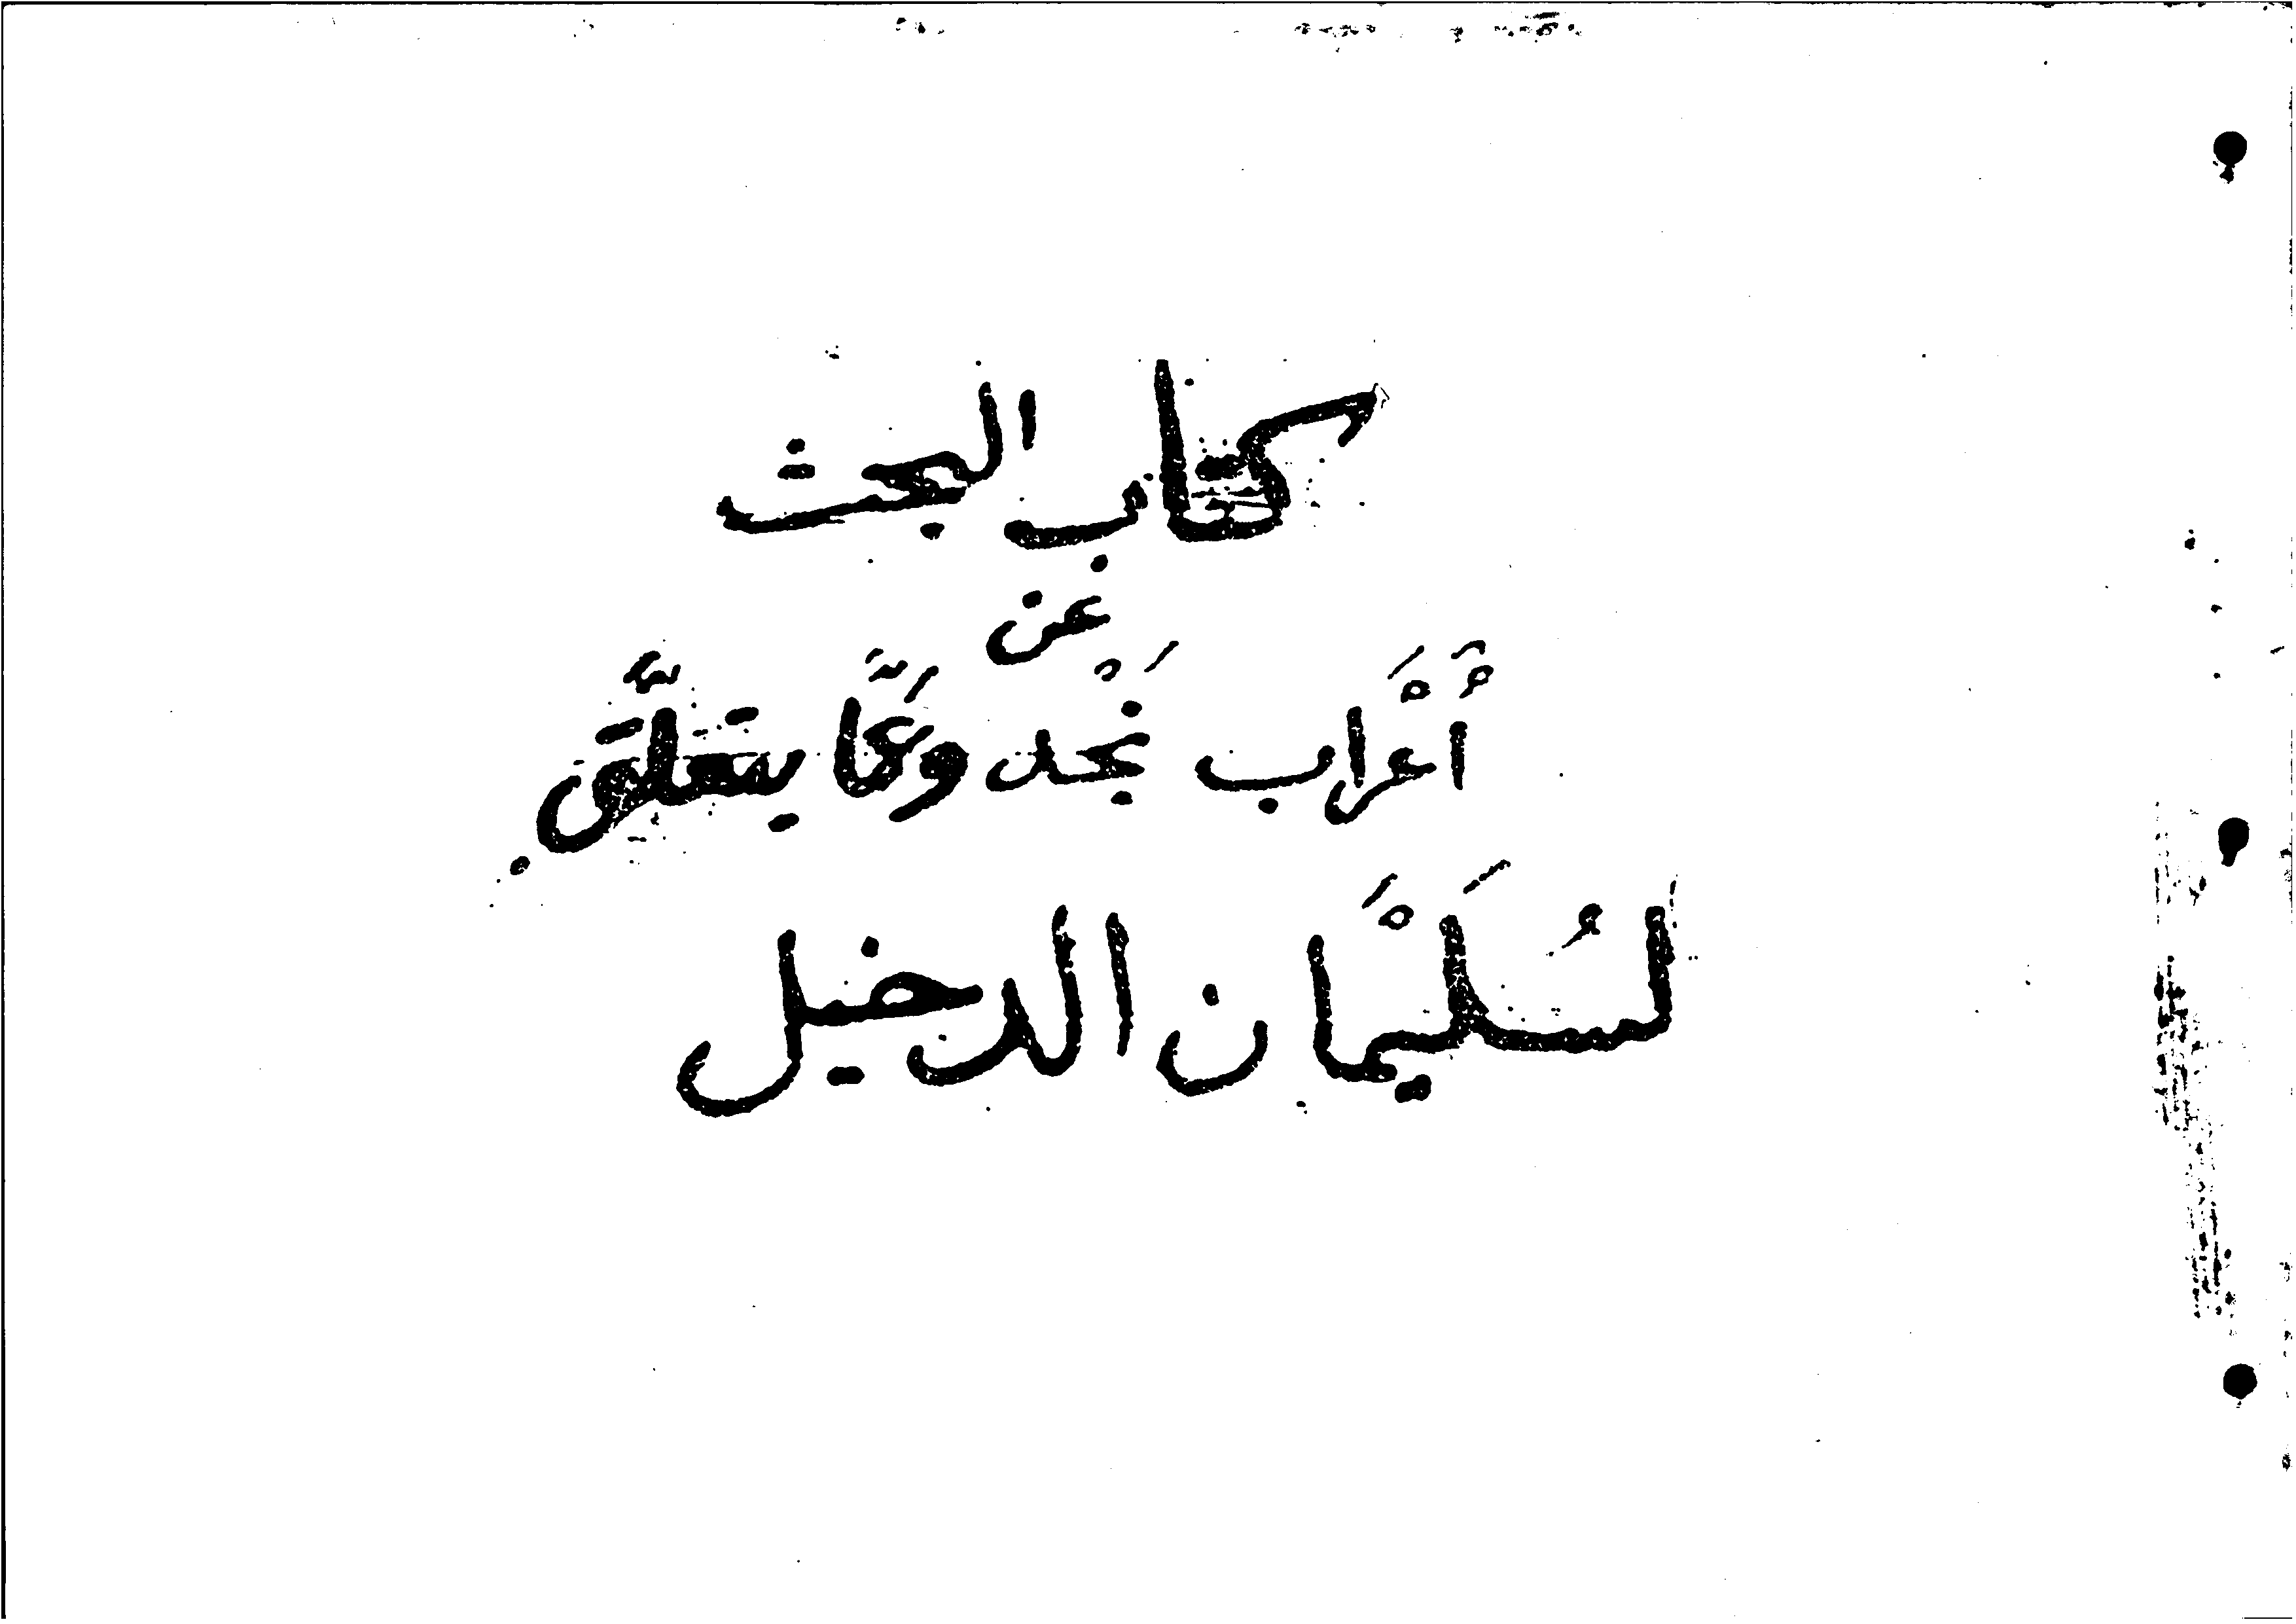 كتاب البحث
عن
أعْرَاب نَجْد وَعَمَّا يتعلَّق
لسُلَيْمَان الدخيل